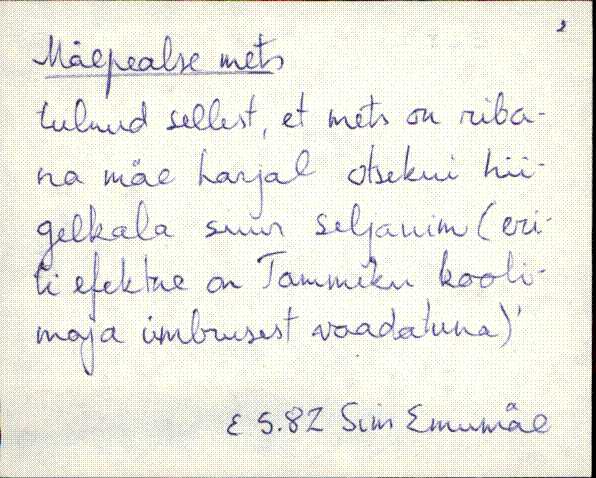 2
Mäepealse mets
tulnud sellest, et mets on riba-
na mäe harjal otsekui hii-
gelkala suur seljauim (eri-
ti efektne on Tammiku kooli-
maja ümbrusest vaadatuna)'
E 5.82 Sim Emumäe